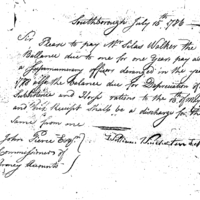 Southborough July 15th 1786
Sir Please to pay Mr Silas Walker the
Ballance due to me for one years pay as
a Supernumerary officer deranged in the year
1780 also the balance due for Depreciation of
Subsistance and rations to the
and this Receipt Shall be a discharge for the
Same from me
John Pierce Esqr
Commissioner of
Army Accounts
William